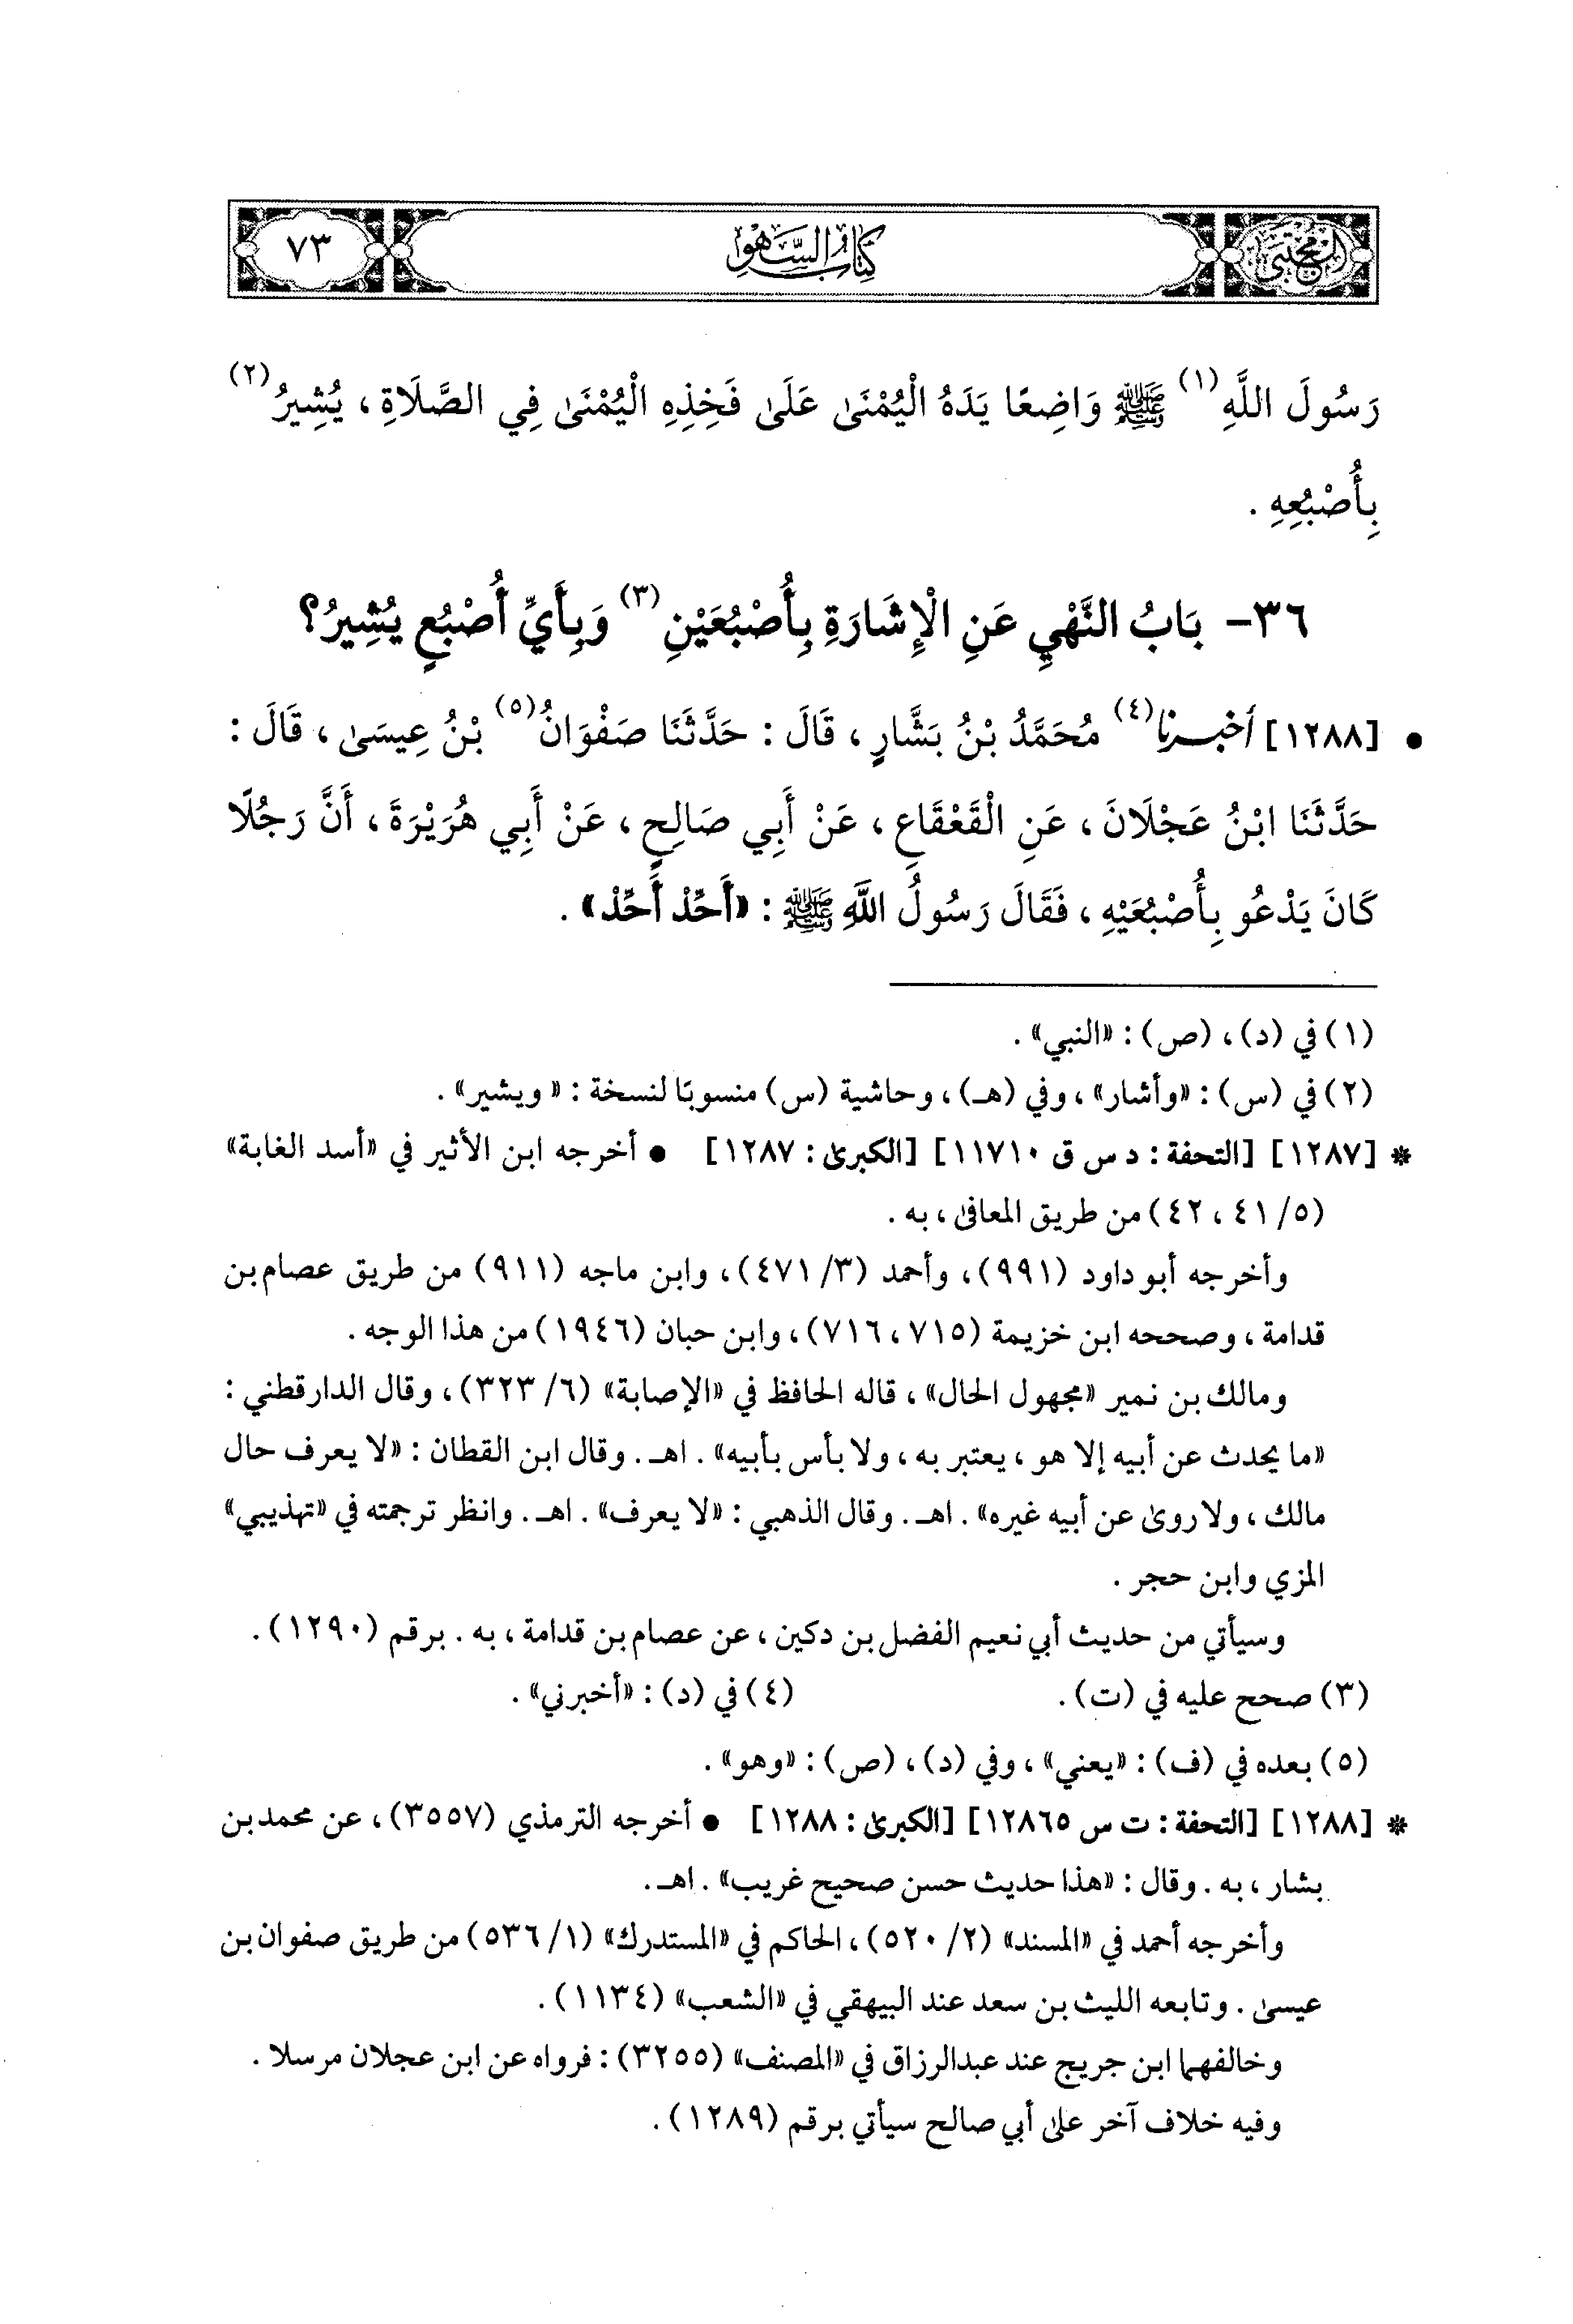 المجتبى
كتاب السهو
٧٣
رَسُولَ اللَّهِ(١) ﷺ وَاضِعًا يَدَهُ الْيُمْنَىٰ عَلَىٰ فَخِذِهِ الْيُمْنَىٰ فِي الصَّلَاةِ ، يُشِيرُ(٢)
بِأُصْبُعِهِ .
٣٦- بَابُ النَّهْيِ عَنِ الْإِشَارَةِ بِأُصْبُعَيْنِ(٣) وَبِأَيِّ أُصْبُعٍ يُشِيرُ؟
• [١٢٨٨] أخبرنا(٤) مُحَمَّدُ بْنُ بَشَّارٍ ، قَالَ : حَدَّثَنَا صَفْوَانُ(٥) بْنُ عِيسَىٰ ، قَالَ :
حَدَّثَنَا ابْنُ عَجْلَانَ ، عَنِ الْقَعْقَاعِ ، عَنْ أَبِي صَالِحٍ ، عَنْ أَبِي هُرَيْرَةَ ، أَنَّ رَجُلًا
كَانَ يَدْعُو بِأُصْبُعَيْهِ ، فَقَالَ رَسُولُ اللَّهِ ﷺ : «أَحِّدْ أَحِّدْ» .
(١) في (د) ، (ص) : «النبي» .
(٢) في (س) : «وأشار» ، وفي (هـ) ، وحاشية (س) منسوبًا لنسخة : «ويشير» .
* [١٢٨٧] [التحفة : د س ق ١١٧١٠] [الكبرىٰ : ١٢٨٧] • أخرجه ابن الأثير في «أسد الغابة»
(٥/ ٤١ ، ٤٢) من طريق المعافىٰ ، به .
وأخرجه أبو داود (٩٩١) ، وأحمد (٣/ ٤٧١) ، وابن ماجه (٩١١) من طريق عصام بن
قدامة ، وصححه ابن خزيمة (٧١٥ ، ٧١٦) ، وابن حبان (١٩٤٦) من هذا الوجه .
ومالك بن نمير «مجهول الحال» ، قاله الحافظ في «الإصابة» (٦/ ٣٢٣) ، وقال الدارقطني :
«ما يحدث عن أبيه إلا هو ، يعتبر به ، ولا بأس بأبيه» . اهـ . وقال ابن القطان : «لا يعرف حال
مالك ، ولا روىٰ عن أبيه غيره» . اهـ . وقال الذهبي : «لا يعرف» . اهـ . وانظر ترجمته في «تهذيبي»
المزي وابن حجر .
وسيأتي من حديث أبي نعيم الفضل بن دكين ، عن عصام بن قدامة ، به . برقم (١٢٩٠) .
(٣) صحح عليه في (ت) . (٤) في (د) : «أخبرني» .
(٥) بعده في (ف) : «يعني» ، وفي (د) ، (ص) : «وهو» .
* [١٢٨٨] [التحفة : ت س ١٢٨٦٥] [الكبرىٰ : ١٢٨٨] • أخرجه الترمذي (٣٥٥٧) ، عن محمد بن
بشار ، به . وقال : «هذا حديث حسن صحيح غريب» . اهـ .
وأخرجه أحمد في «المسند» (٢/ ٥٢٠) ، الحاكم في «المستدرك» (١/ ٥٣٦) من طريق صفوان بن
عيسىٰ . وتابعه الليث بن سعد عند البيهقي في «الشعب» (١١٣٤) .
وخالفهما ابن جريج عند عبدالرزاق في «المصنف» (٣٢٥٥) : فرواه عن ابن عجلان مرسلا .
وفيه خلاف آخر علىٰ أبي صالح سيأتي برقم (١٢٨٩) .